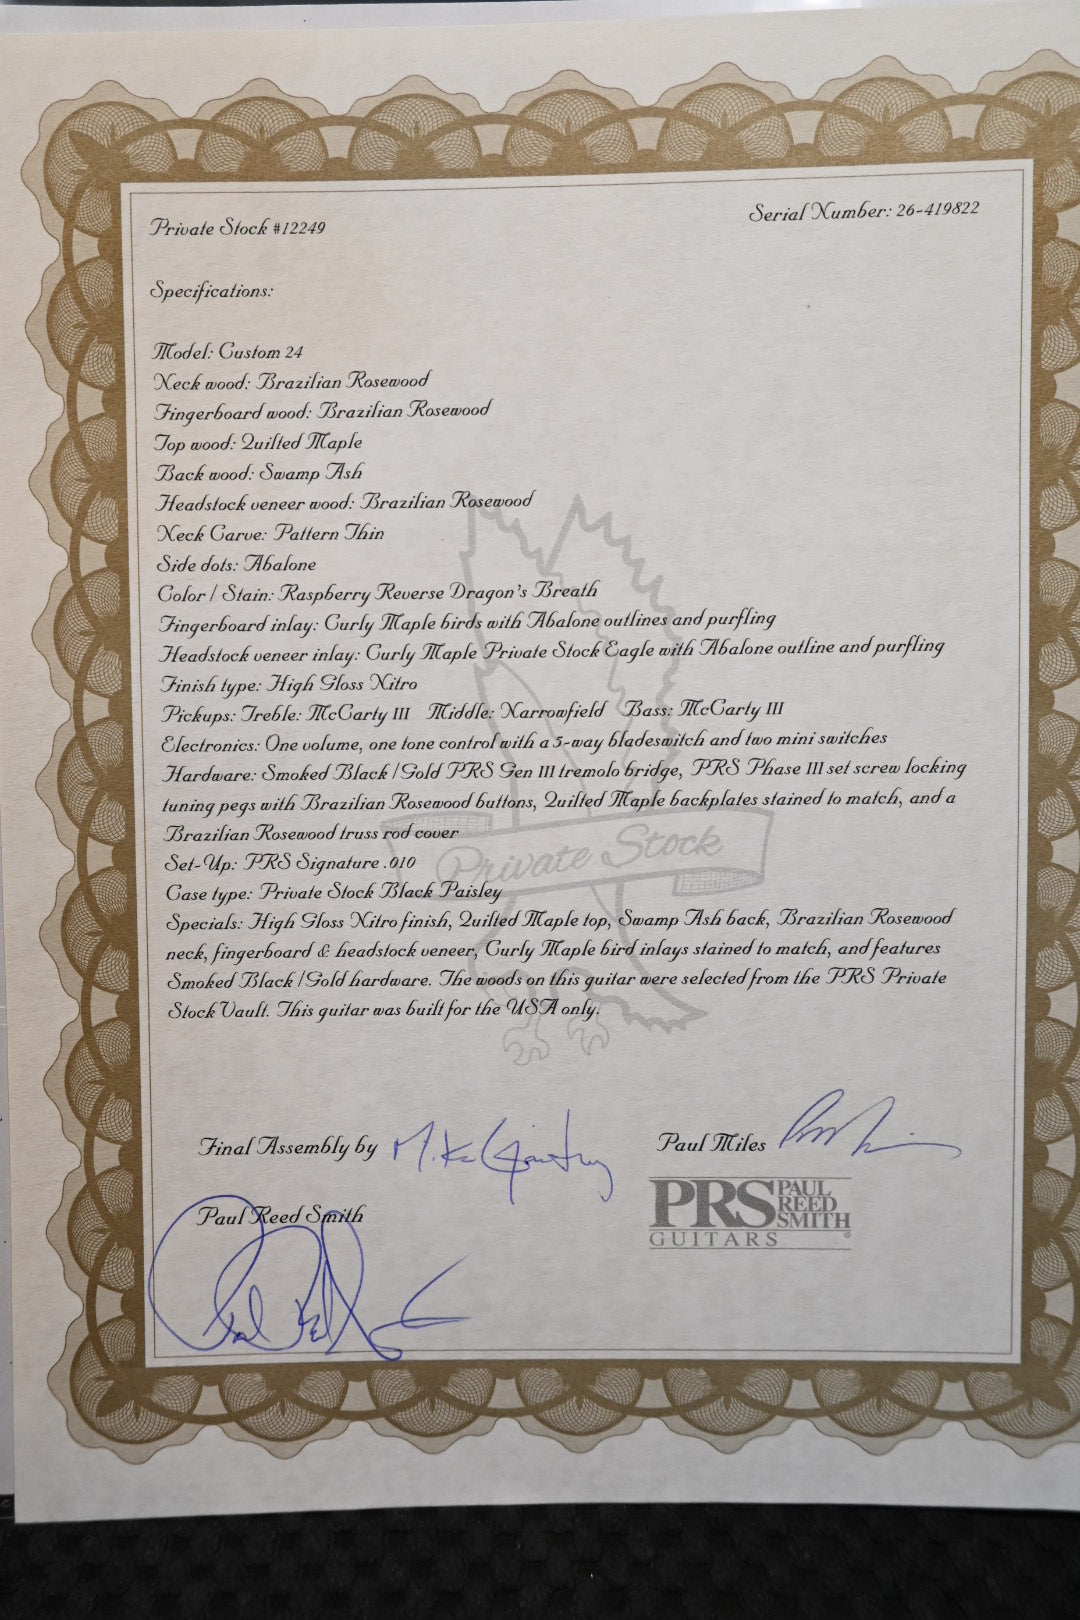 Private Stock #12249
Serial Number: 26-419822
Specifications:
Model: Custom 24
Neck wood: Brazilian Rosewood
Fingerboard wood: Brazilian Rosewood
Top wood: Quilted Maple
Back wood: Swamp Ash
Headstock veneer wood: Brazilian Rosewood
Neck Carve: Pattern Thin
Side dots: Abalone
Color / Stain: Raspberry Reverse Dragon's Breath
Fingerboard inlay: Curly Maple birds with Abalone outlines and purfling
Headstock veneer inlay: Curly Maple Private Stock Eagle with Abalone outline and purfling
Finish type: High Gloss Nitro
Pickups: Treble: McCarty III Middle: Narrowfield Bass: McCarty III
Electronics: One volume, one tone control with a 5-way bladeswitch and two mini switches
Hardware: Smoked Black / Gold PRS Gen III tremolo bridge, PRS Phase III set screw locking
tuning pegs with Brazilian Rosewood buttons, Quilted Maple backplates stained to match, and a
Brazilian Rosewood truss rod cover
Private Stock
Set-Up: PRS Signature .010
Case type: Private Stock Black Paisley
Specials: High Gloss Nitro finish, Quilted Maple top, Swamp Ash back, Brazilian Rosewood
neck, fingerboard & headstock veneer, Curly Maple bird inlays stained to match, and features
Smoked Black / Gold hardware. The woods on this guitar were selected from the PRS Private
Stock Vault. This guitar was built for the USA only.
Final Assembly by
Paul Miles
Paul Reed Smith
PRS PAUL REED SMITH
GUITARS